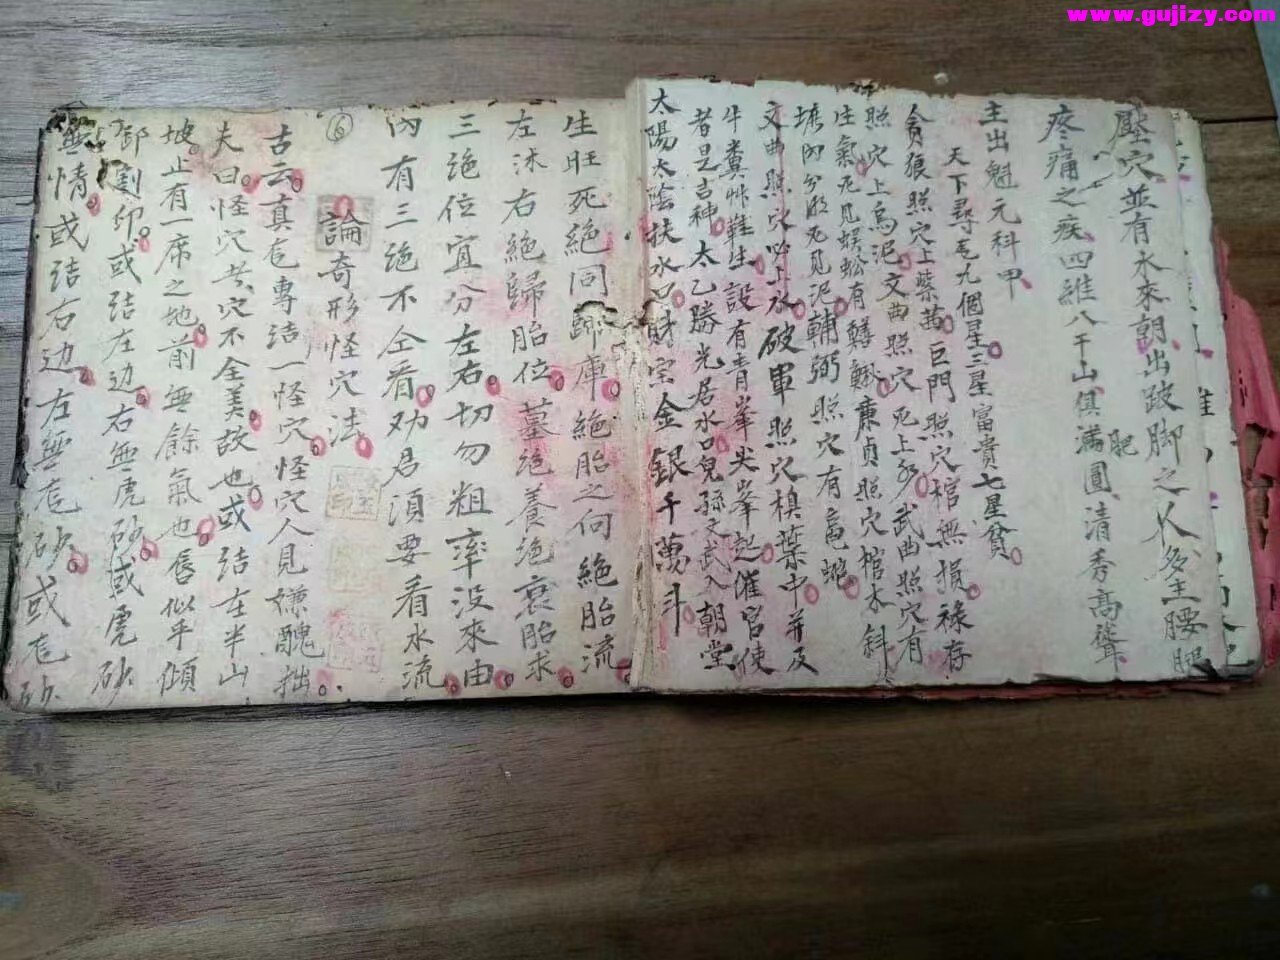 www.gujizy.com
壓穴並有水來朝出跛脚之人多主腰腿
疼痛之疾四維八干山俱滿圓清秀高聳
肥
主出魁元科甲
天下尋龙九個星三星富貴七星貧
貪狼照穴上紫茜巨門照穴棺無損祿存
照穴上烏泥文曲照穴死上 武曲照穴有
生氣死見蜈蚣有 廉貞照穴棺木斜
塘内分 死見泥輔弼照穴有
文曲照穴必上水破軍照穴槙葉中并及
牛糞艸鞋生設有青峯尖峯起催官使
者是吉神太乙勝光居水口兒孫文武入朝堂
太陽太陰扶水口財宝金銀千萬斗
生旺死絶同歸庫絶胎之向絶胎流
左沐右絶歸胎位墓絶養絶衰胎求
三絶位宜分左右切勿粗率没來由
內有三絶不仝看劝君須要看水流
6
論奇形怪穴法
古云真龙專结一怪穴怪穴人見嫌醜拙
夫曰怪穴共穴不全美故也或结在半山
坡止有一席之地前無餘氣也唇似乎傾
卸劃卯或结左边右無虎砂或虎砂
無情或结右边左無龙砂或龙砂